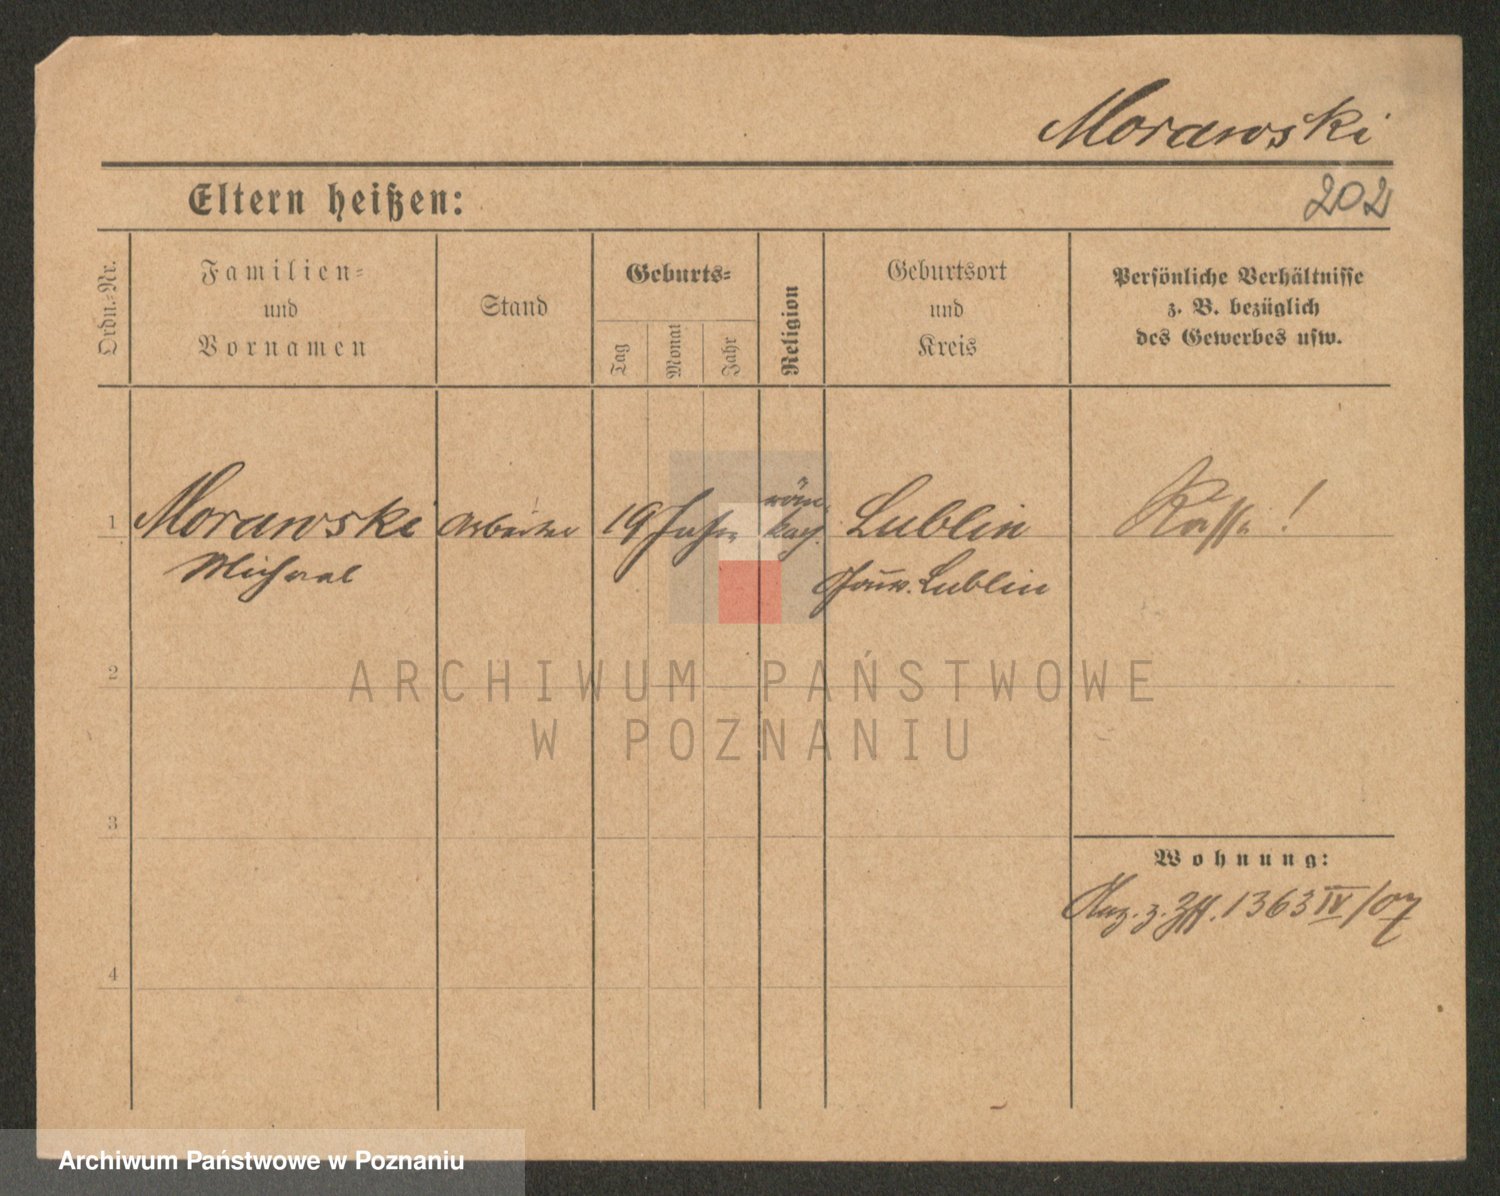 Morawski
Eltern heißen:
202
Ordn.-Nr.
Familien-
und
Vornamen
Stand
Geburts-
Tag
Monat
Jahr
Religion
Geburtsort
und
Kreis
Persönliche Verhältnisse
z. B. bezüglich
des Gewerbes usw.
1
Morawski
Michael
Arbeiter
19 Jahre
röm.
kath.
Lublin
Gouv. Lublin
2
ARCHIWUM PAŃSTWOWE
W POZNANIU
3
Wohnung:
1363 IV/07
4
Archiwum Państwowe w Poznaniu